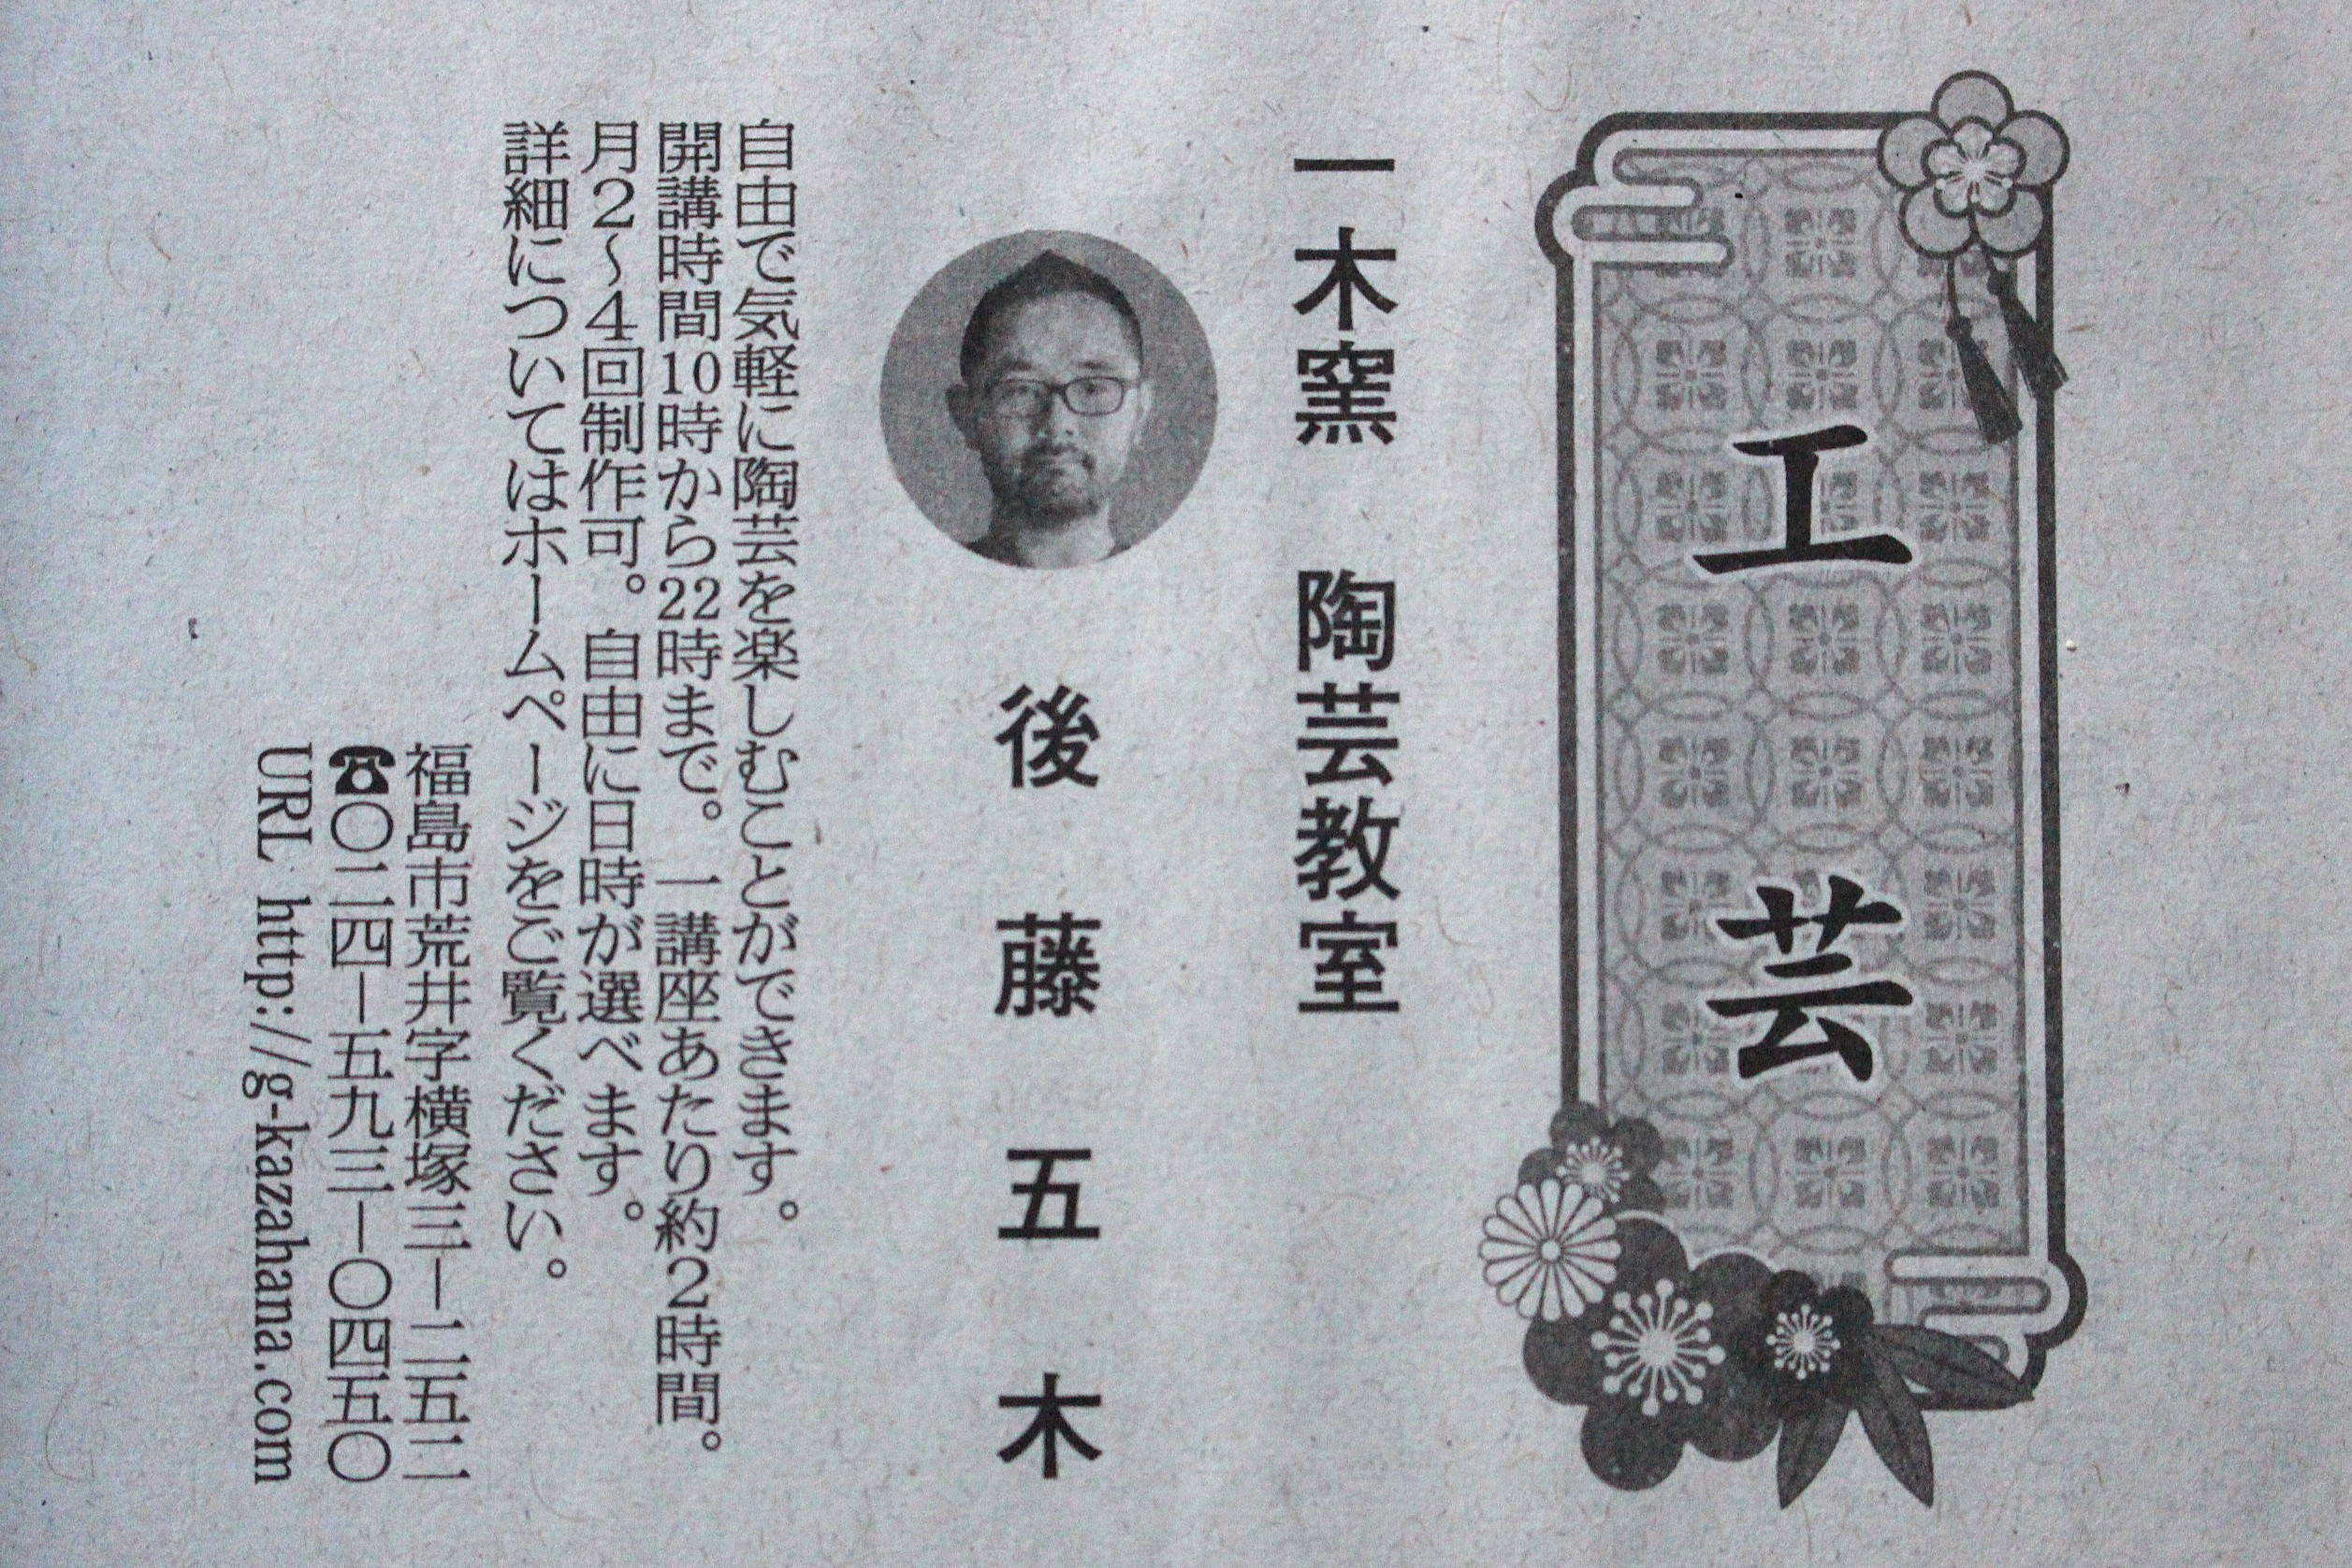 工芸
一木窯　陶芸教室
後藤五木
自由で気軽に陶芸を楽しむことができます。
開講時間10時から22時まで。一講座あたり約２時間。
月２～４回制作可。自由に日時が選べます。
詳細についてはホームページをご覧ください。
福島市荒井字横塚三－二五二
☎〇二四－五九三－〇四五〇
URL http://g-kazahana.com